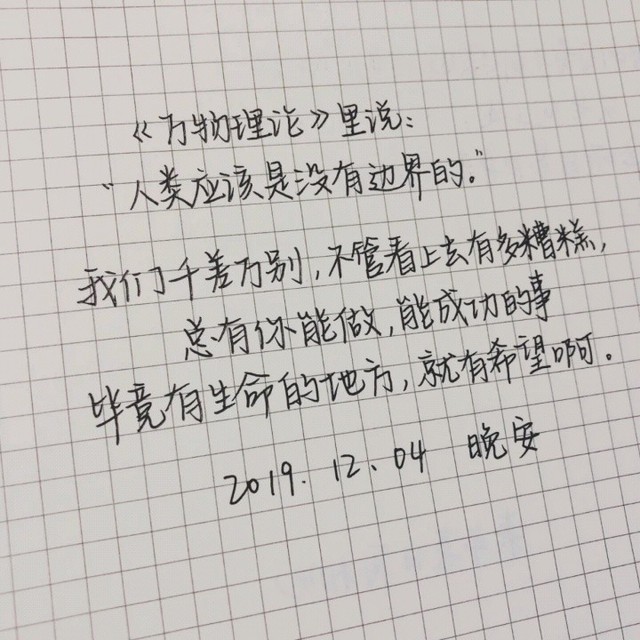 《万物理论》里说：
“人类应该是没有边界的。”
我们千差万别，不管看上去有多糟糕，
总有你能做，能成功的事
毕竟有生命的地方，就有希望啊。
2019.12.04 晚安